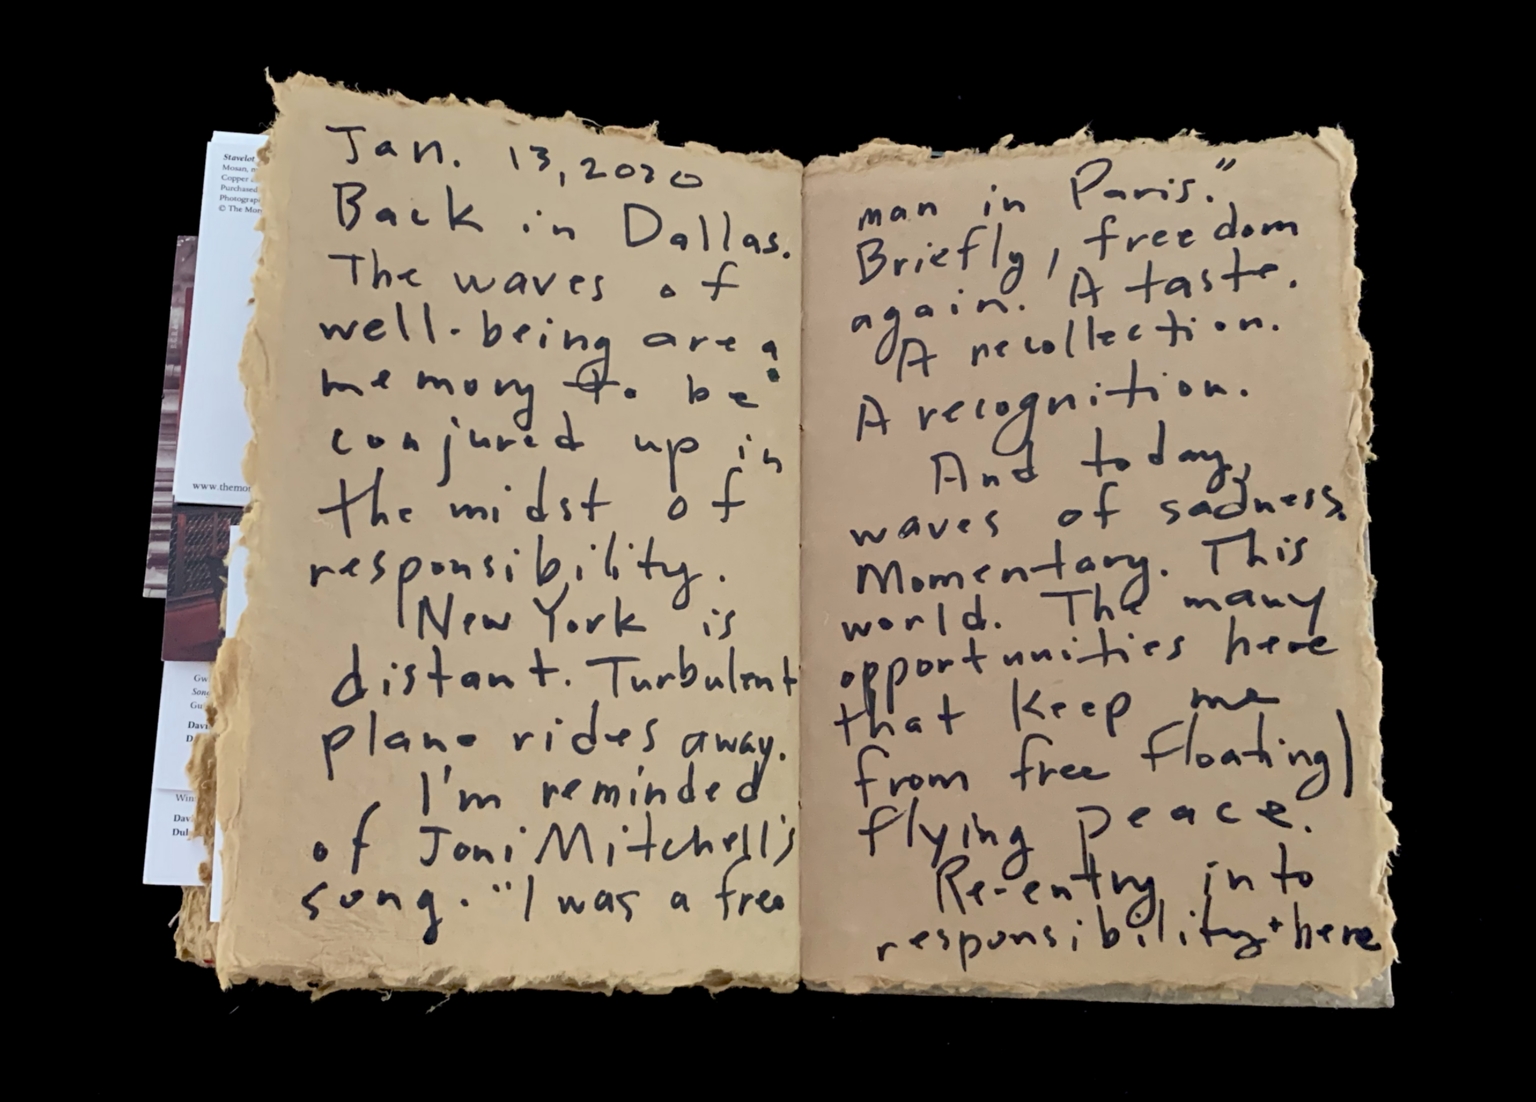 Stavelot
Mosan,
Copper
Purchased
Photograp
© The Mor
www.themor
Gw
Son
Gu
Davi
D
Win
Dav
Dul
Jan. 13, 2020
Back in Dallas.
The waves of
well-being are a
memory to be
conjured up in
the midst of
responsibility.
New York is
distant. Turbulent
plane rides away.
I'm reminded
of Joni Mitchell's
song. "I was a free
man in Paris."
Briefly, freedom
again. A taste.
A recollection.
A recognition.
And today,
waves of sadness.
Momentary. This
world. The many
opportunities here
that keep me
from free floating/
flying peace.
Re-entry into
responsibility + here